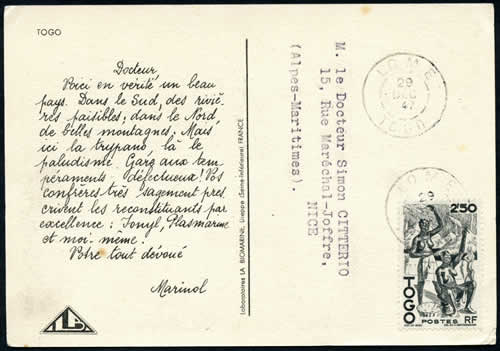 TOGO
Docteur,
Voici en vérité un beau
pays. Dans le Sud, des riviè-
res paisibles; dans le Nord,
de belles montagnes; Mais
ici la trypano, là le
paludisme. Gare aux tem-
péraments défectueux! Vos
confrères très sagement pres
crivent les reconstituants par
excellence: Ionyl, Plasmarine
et moi-même!
Vôtre tout dévoué
Marinol
Laboratoires LA BIOMARINE, Dieppe (Seine-Inférieure) FRANCE
M. le Docteur Simon CITTERIO
15, Rue Maréchal-Joffre,
NICE
(Alpes-Maritimes).
LOMÉ
29
DEC
47
TOGO
LOMÉ
29
2F50
TOGO
POSTES RF